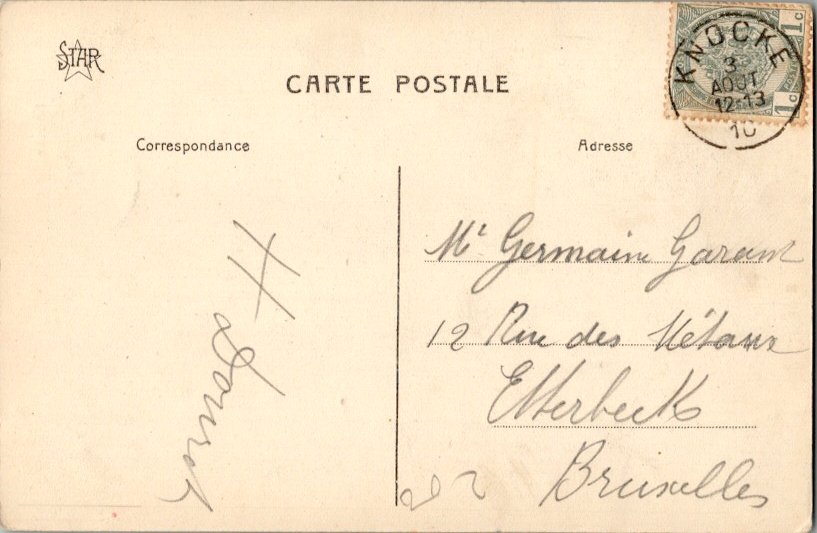 STAR
CARTE POSTALE
KNOCKE
3
AOUT
12-13
10
1c
1c
Correspondance
Adresse
H
Mr Germain Garant
12 Rue des Métaux
Etterbeek
Bruxelles